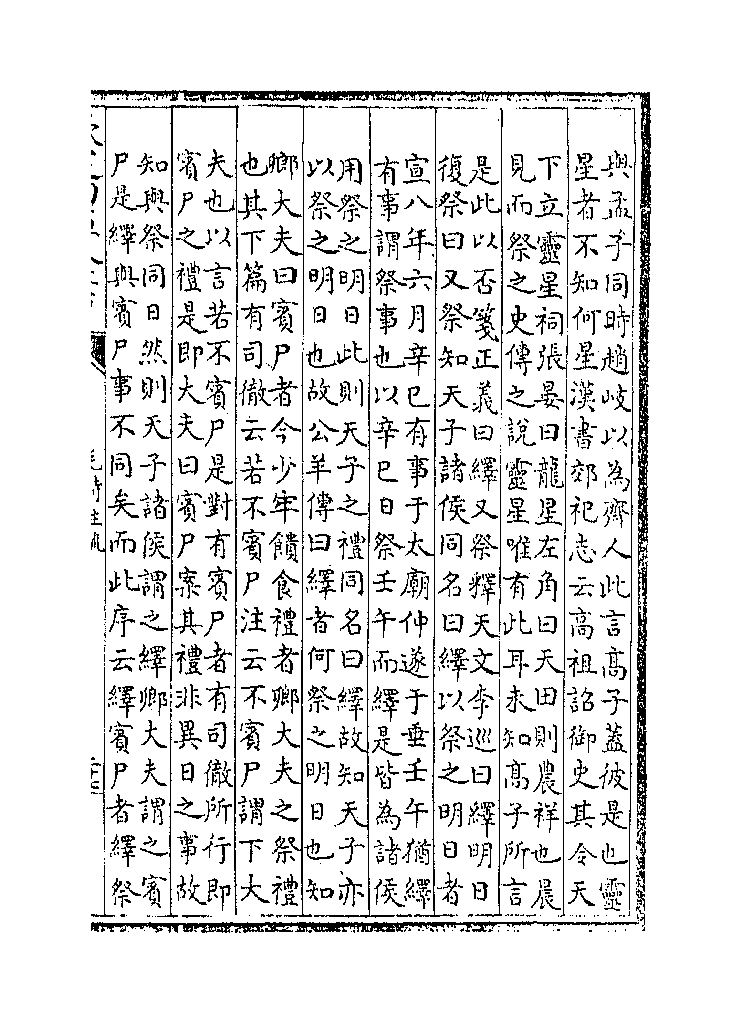 與孟子同時趙岐以為齊人此言高子蓋彼是也靈
星者不知何星漢書郊祀志云高祖詔御史其令天
下立靈星祠張晏曰龍星左角曰天田則農祥也晨
見而祭之史傳之說靈星唯有此耳未知高子所言
是此以否箋正義曰繹又祭釋天文李巡曰繹明日
復祭曰又祭知天子諸侯同名曰繹以祭之明日者
宣八年六月辛巳有事于太廟仲遂于垂壬午猶繹
有事謂祭事也以辛巳日祭壬午而繹是皆為諸侯
用祭之明日此則天子之禮同名曰繹故知天子亦
以祭之明日也故公羊傳曰繹者何祭之明日也知
鄉大夫曰賓尸者今少牢饋食禮者鄉大夫之祭禮
也其下篇有司徹云若不賓尸注云不賓尸謂下大
夫也以言若不賓尸是對有賓尸者有司徹所行即
賓尸之禮是即大夫曰賓尸案其禮非異日之事故
知與祭同日然則天子諸侯謂之繹鄉大夫謂之賓
尸是繹與賓尸事不同矣而此序云繹賓尸者繹祭
毛詩注疏